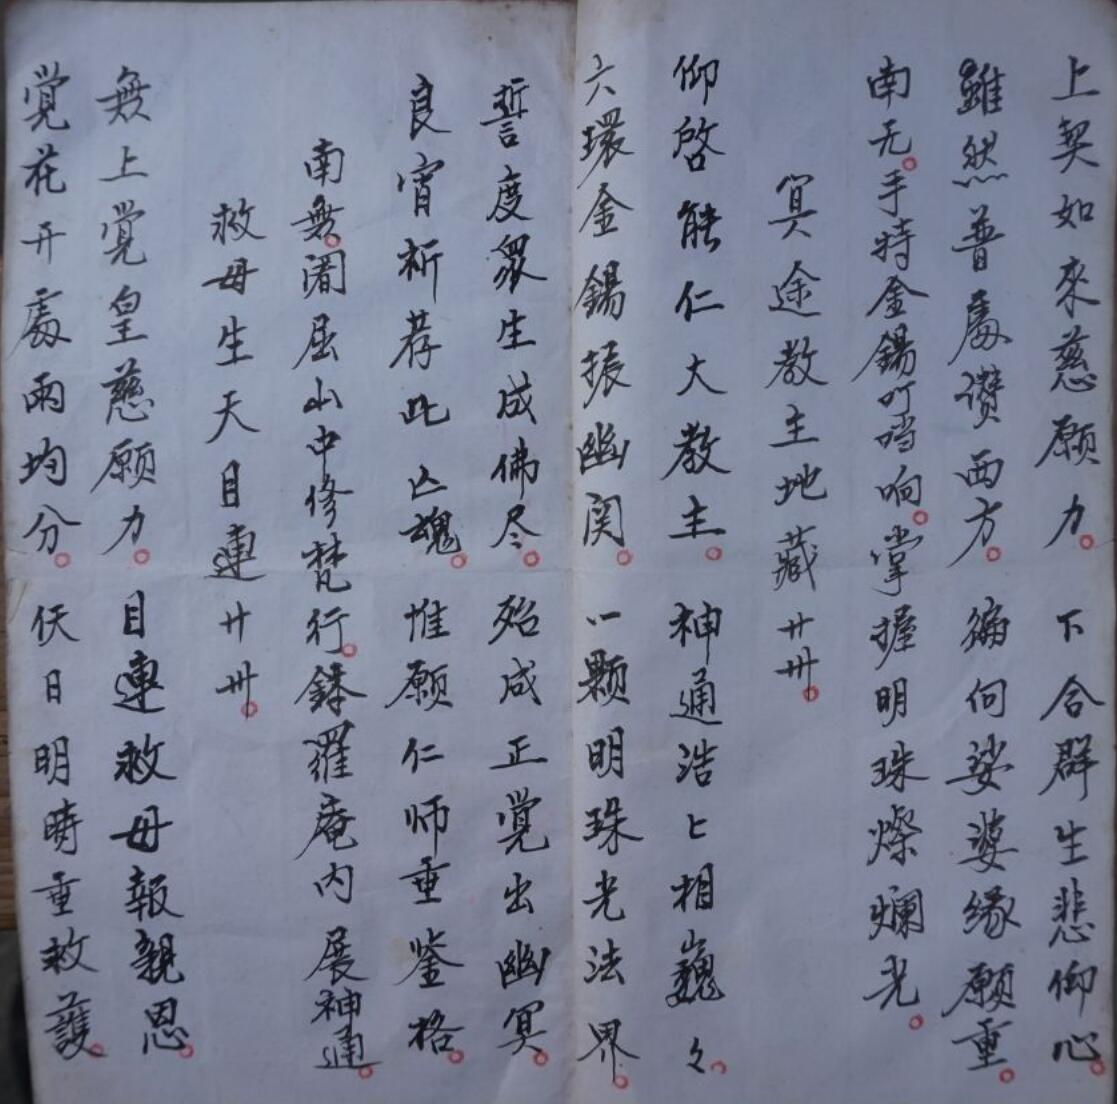 上契如來慈願力。下合群生悲仰心。
雖然普處讚西方。徧向娑婆緣願重。
南无。手持金錫叮噹响。掌握明珠燦爛光。
冥途教主地藏廿卅。
仰啓能仁大教主。神通浩〻相巍々。
六環金錫振幽関。一顆明珠光法界。
誓度眾生成佛尽。殆成正覚出幽冥。
良宵祈荐此亡魂。惟願仁师重鉴格。
南無。闍屈山中修梵行。鉢羅庵内展神通。
救母生天目連廿卅。
無上覚皇慈願力。目連救母報親恩。
覚花开處兩均分。伏日明時重救護。